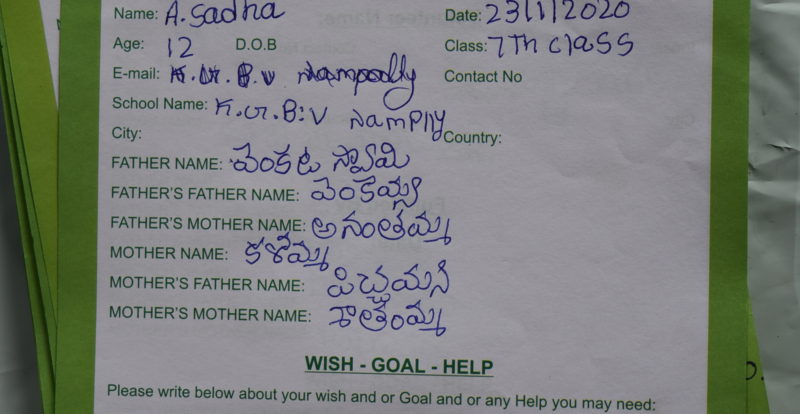 Name: A. Sadha Date: 23/1/2020
Age: 12 D.O.B Class: 7Th class
E-mail: K.G.B.V Nampally Contact No
School Name: K.G.B.V Namplly
City: Country:
FATHER NAME: వెంకట స్వామి
FATHER'S FATHER NAME: వెంకయ్య
FATHER'S MOTHER NAME: అనంతమ్మ
MOTHER NAME: కళమ్మ
MOTHER'S FATHER NAME:
MOTHER'S MOTHER NAME: శాతంమ్మ
WISH - GOAL - HELP
Please write below about your wish and or Goal and or any Help you may need: